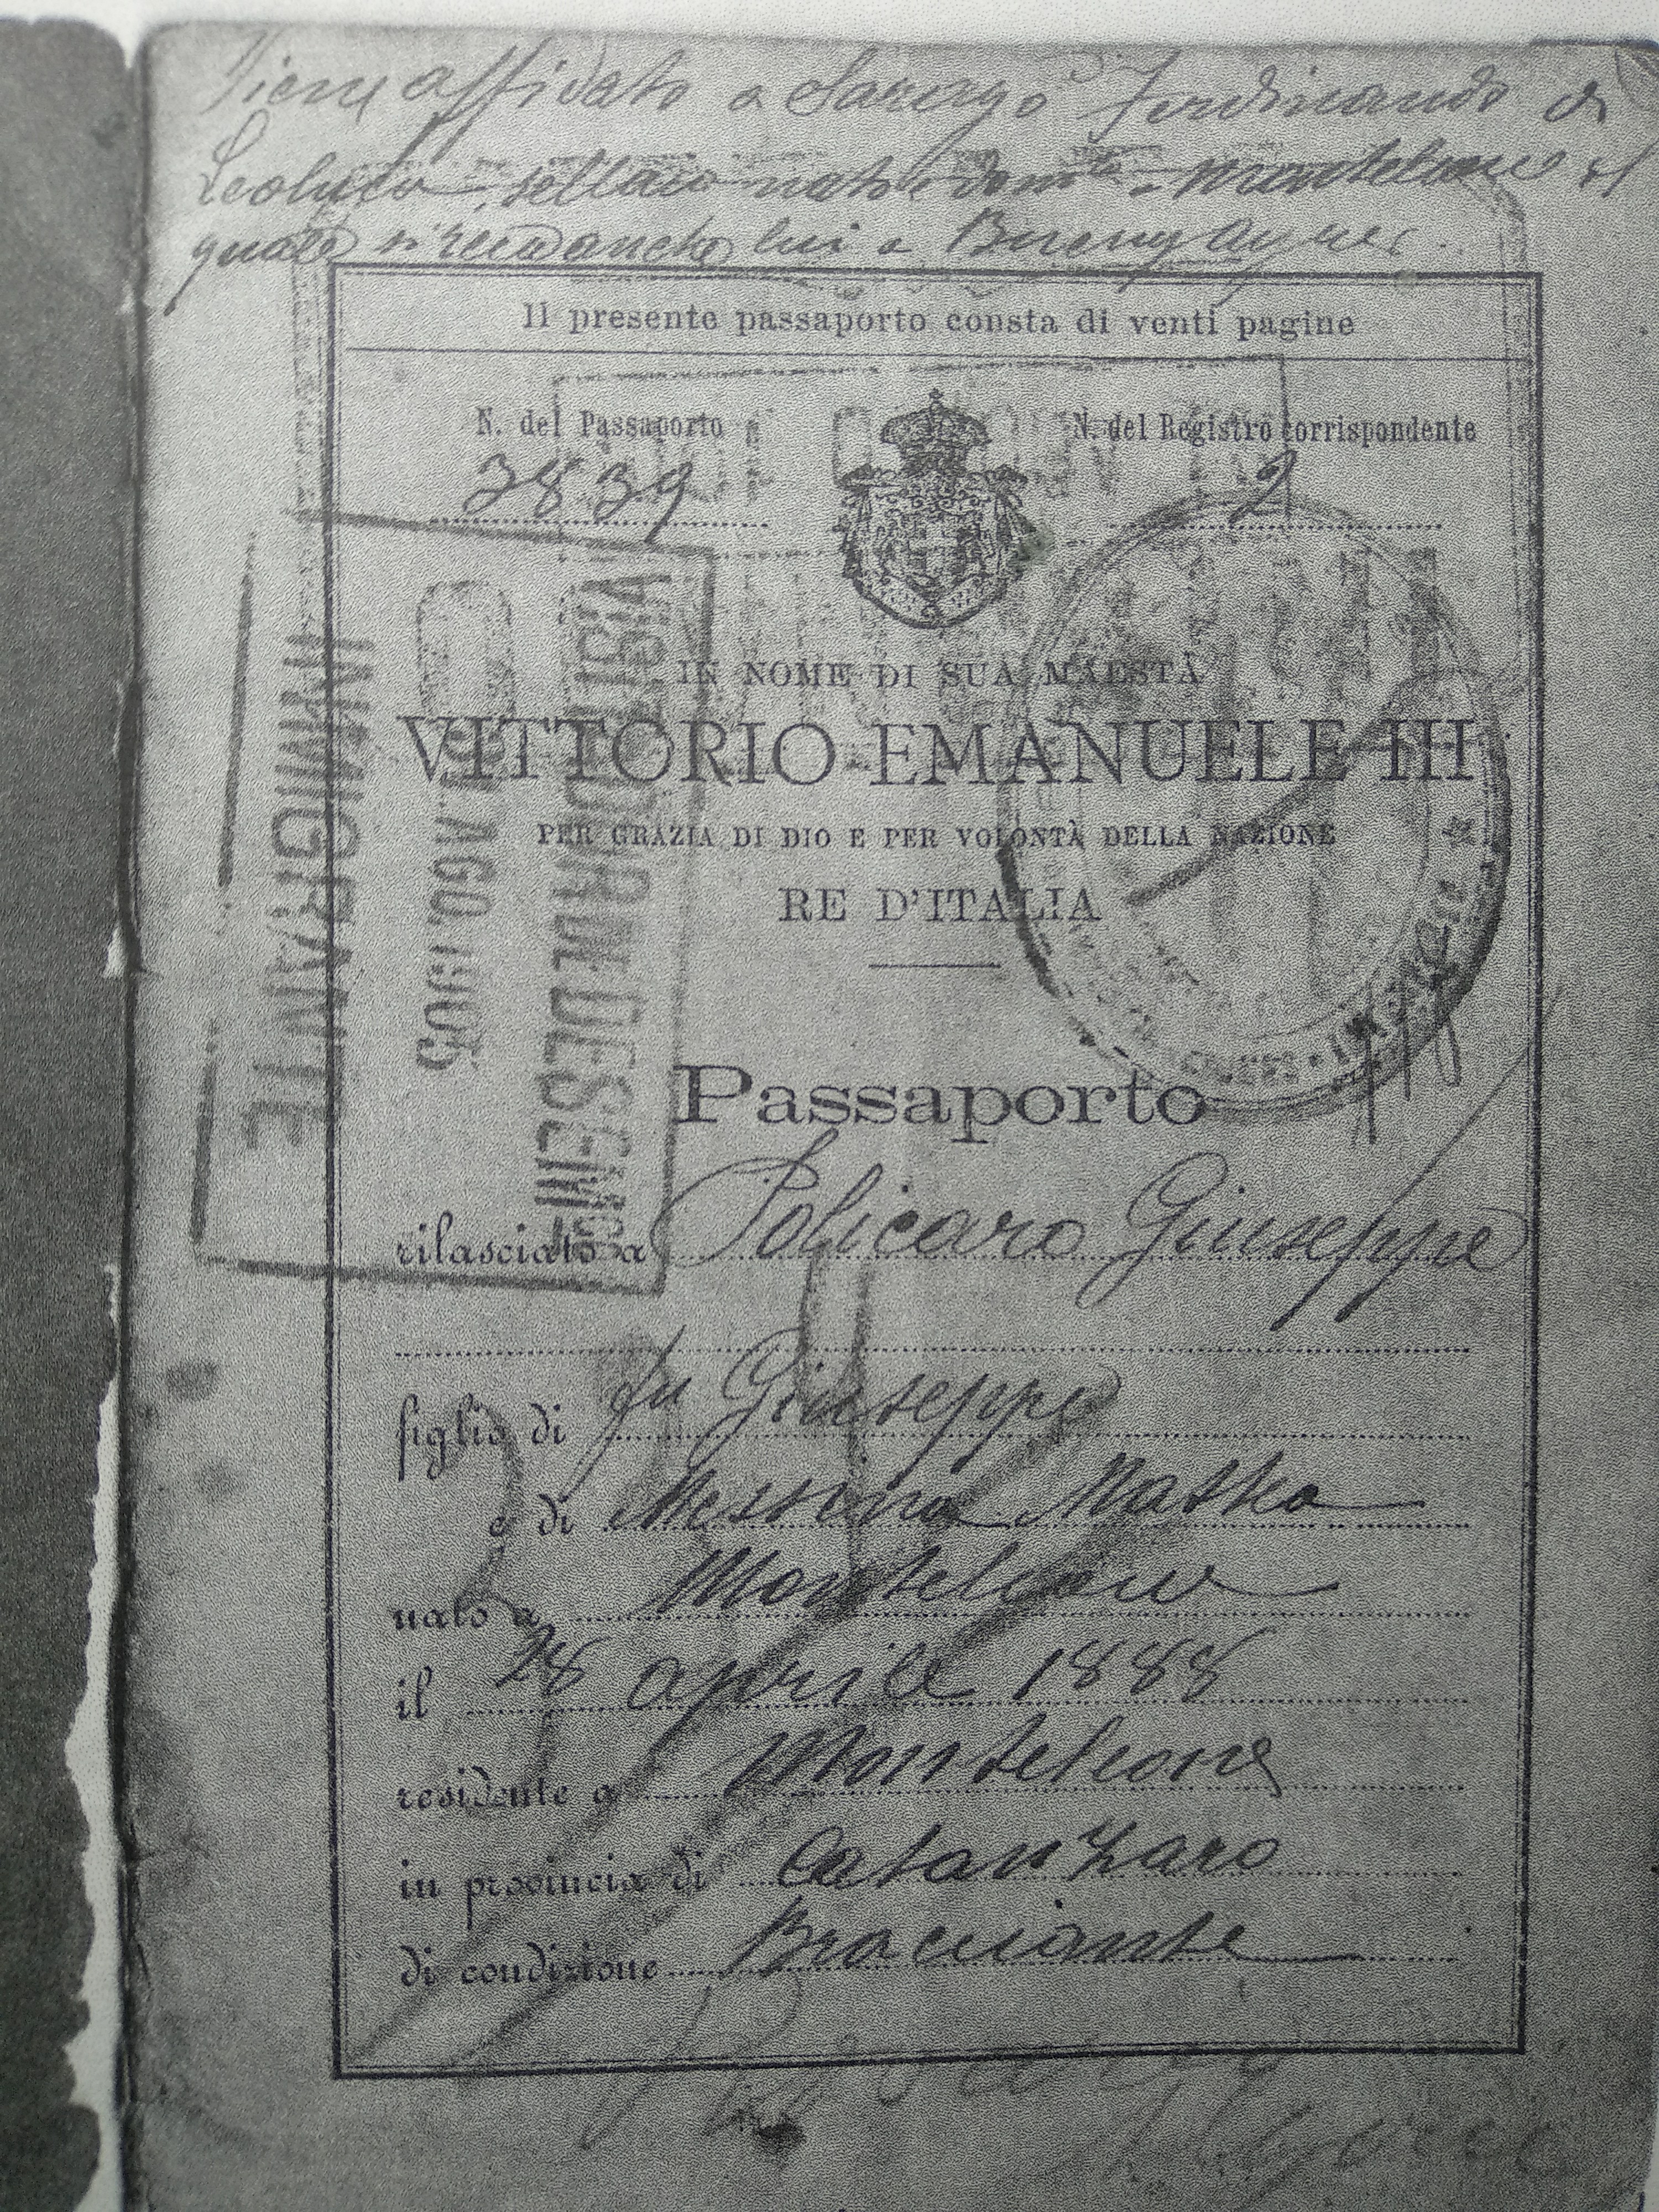 Viene affidato a Sarego Ferdinando di
Leoluca, sellaio nato e domto a Monteleone il
quale si reca anche lui a Buenos Ayres.
Il presente passaporto consta di venti pagine
N. del Passaporto
N. del Registro corrispondente
3839
2
IN NOME DI SUA MAESTÀ
VITTORIO EMANUELE III
PER GRAZIA DI DIO E PER VOLONTÀ DELLA NAZIONE
RE D'ITALIA
Passaporto
rilasciato a Policaro Giuseppe
figlio di fu Giuseppe
e di Messina
nato a Monteleone
il 28 aprile 1888
residente a Monteleone
in provincia di Catanzaro
di condizione Bracciante
VISITADOR DE DESEMB
AGO. 1905
INMIGRANTE